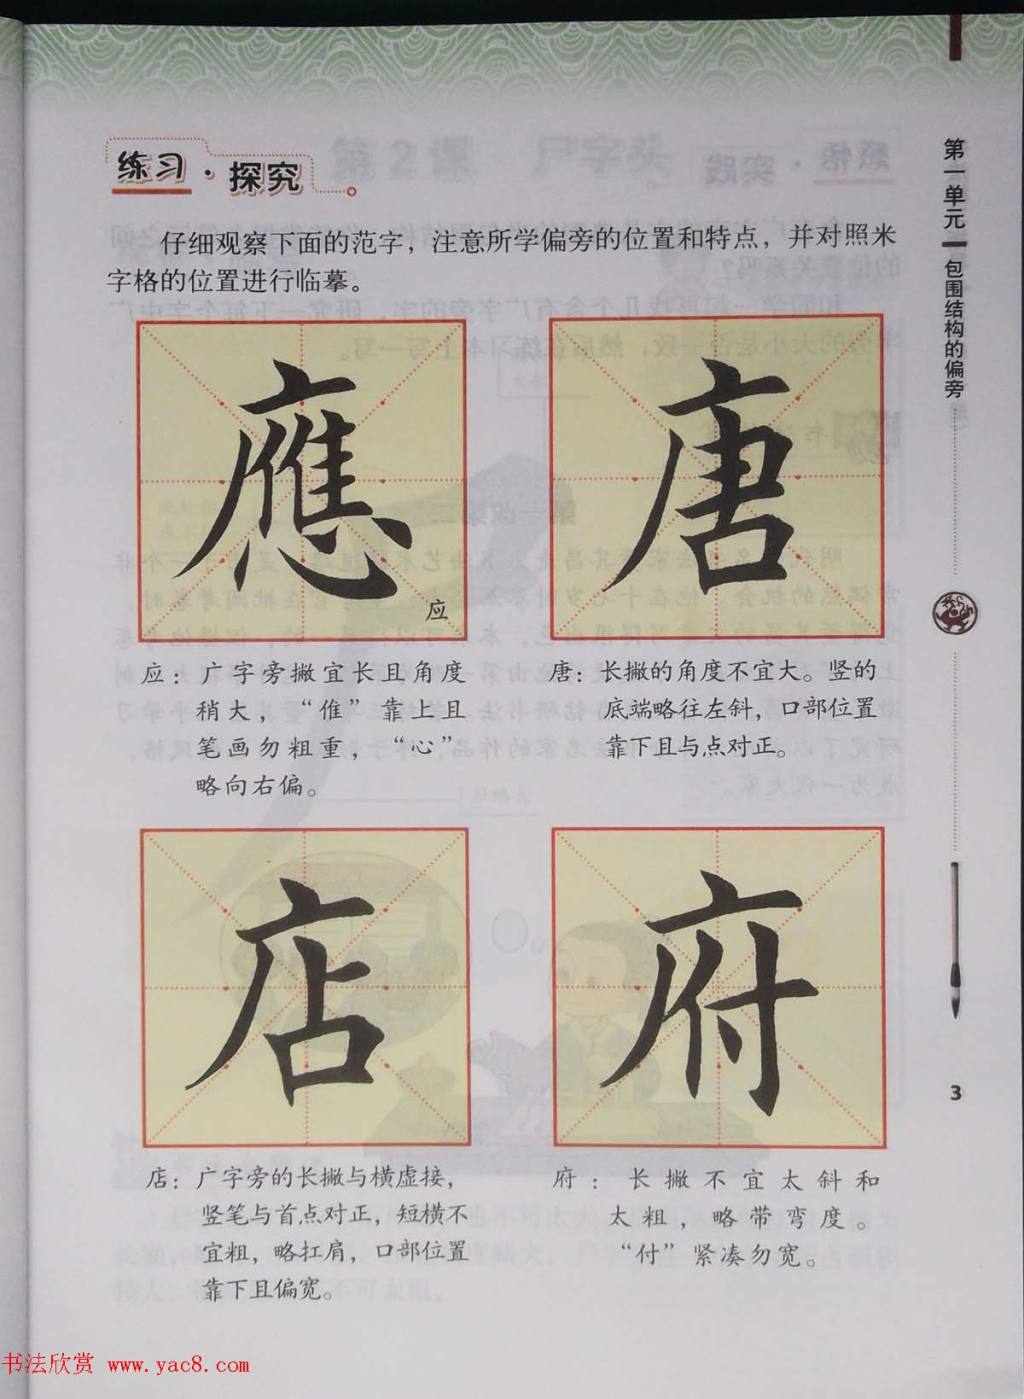 练习·探究
仔细观察下面的范字，注意所学偏旁的位置和特点，并对照米
字格的位置进行临摹。
應
应
唐
应：广字旁撇宜长且角度
稍大，“倠”靠上且
笔画勿粗重，“心”
略向右偏。
唐：长撇的角度不宜大。竖的
底端略往左斜，口部位置
靠下且与点对正。
店
府
店：广字旁的长撇与横虚接，
竖笔与首点对正，短横不
宜粗，略扛肩，口部位置
靠下且偏宽。
府：长撇不宜太斜和
太粗，略带弯度。
“付”紧凑勿宽。
第一单元
包围结构的偏旁
3
书法欣赏 www.yac8.com